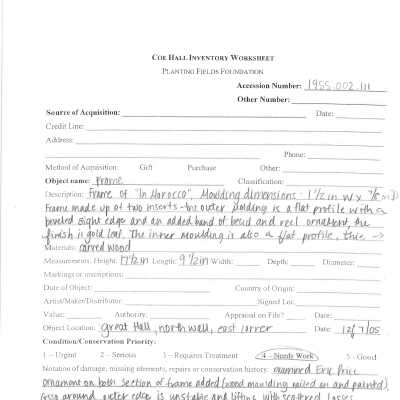 COE HALL INVENTORY WORKSHEET
PLANTING FIELDS FOUNDATION
Accession Number: 1955.002.111
Other Number:
Source of Acquisition: Date:
Credit Line:
Address:
Phone:
Method of Acquisition: Gift Purchase Other:
Object name: Frame Classification:
Description: Frame of "In Morocco", Moulding dimensions - 1 1/2 in W x 7/8 in D
Frame made up of two inserts - the outer moulding is a flat profile with a
beveled sight edge and an added band of bead and reel ornament, the
finish is gold leaf. The inner moulding is also a flat profile, this →
Materials: carved wood
Measurements: Height: 17 1/2 in Length: 9 1/2 in Width: Depth: Diameter:
Markings or inscriptions:
Date of Object: Country of Origin:
Artist/Maker/Distributor: Signed Loc.
Value: Authority: Appraisal on File? Date:
Object Location: Great Hall, north wall, east corner Date: 12/7/05
Condition/Conservation Priority:
1 – Urgent 2 – Serious 3 – Requires Treatment 4 – Needs Work 5 – Good
Notation of damage, missing elements, repairs or conservation history: examined Eric Price
ornament on both section of frame added (wood moulding nailed on and painted),
around outer edge is unstable and lifting with scattered losses